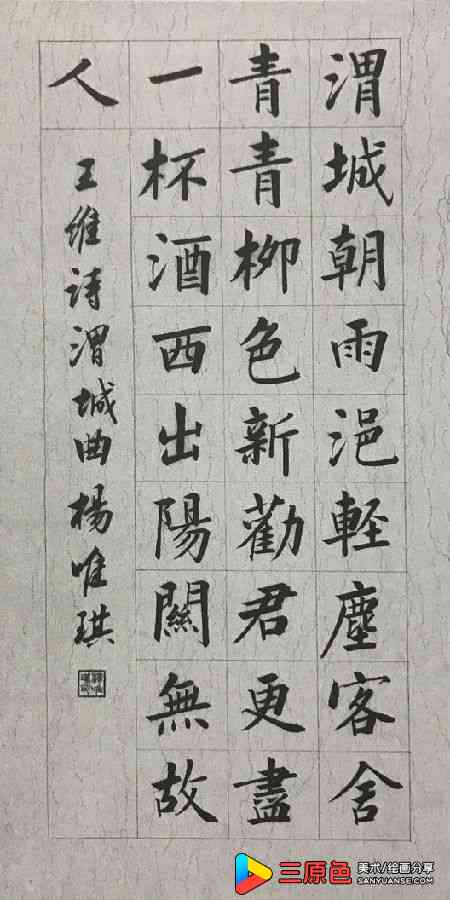 渭城朝雨浥輕塵客舍
青青柳色新勸君更盡
一杯酒西出陽關無故
人
王维诗渭城曲楊唯琪
三原色
美术/绘画分享
SANYUANSE.COM